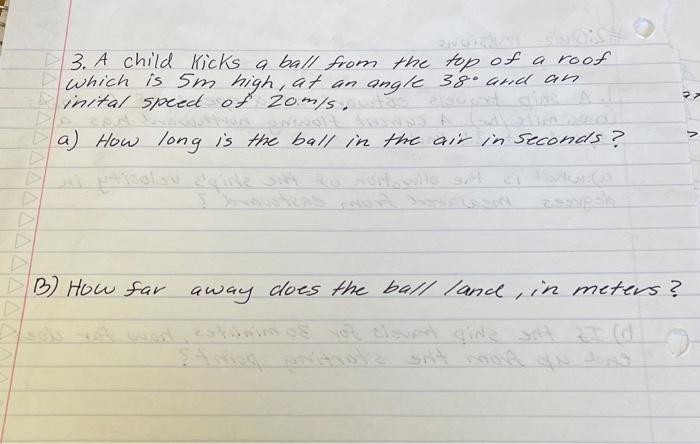 3. A child kicks a ball from the top of a roof
which is 5m high, at an angle 38° and an
inital speed of 20m/s.
a) How long is the ball in the air in seconds?
B) How far away does the ball land, in meters?